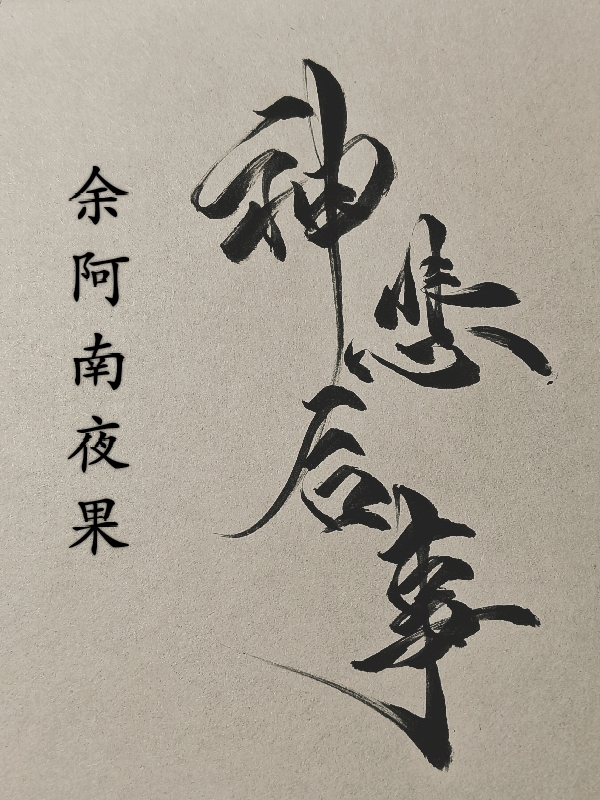 神悲后事
余阿南夜果